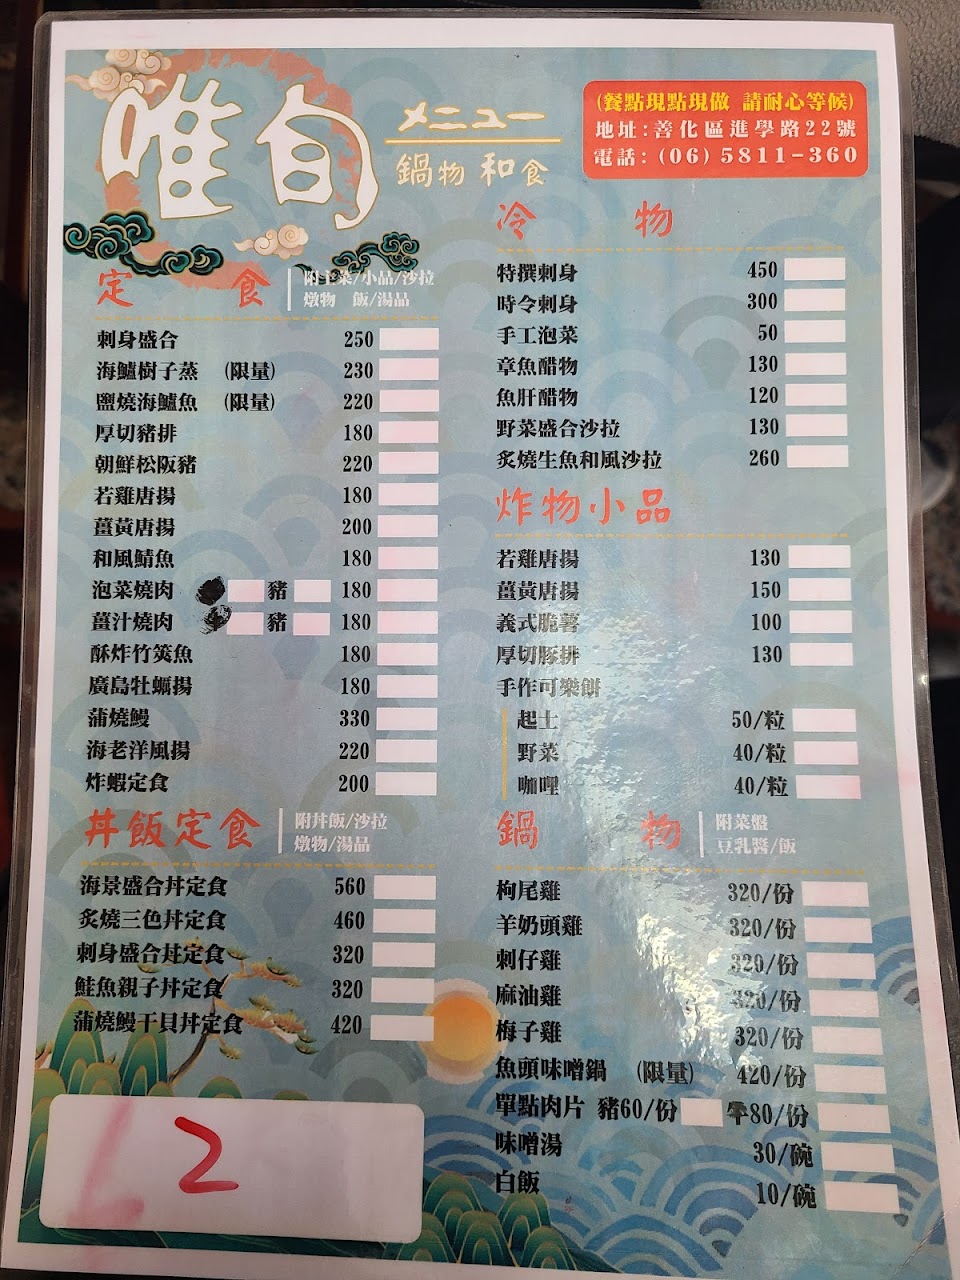 唯旬
メニュー
鍋物 和食
(餐點現點現做 請耐心等候)
地址:善化區進學路22號
電話:(06)5811-360
定食
附主菜/小品/沙拉
燉物 飯/湯品
刺身盛合 250
海鱸樹子蒸 (限量) 230
鹽燒海鱸魚 (限量) 220
厚切豬排 180
朝鮮松阪豬 220
若雞唐揚 180
薑黃唐揚 200
和風鯖魚 180
泡菜燒肉 豬 180
薑汁燒肉 牛 豬 180
酥炸竹筴魚 180
廣島牡蠣揚 180
蒲燒鰻 330
海老洋風揚 220
炸蝦定食 200
丼飯定食
附丼飯/沙拉
燉物/湯品
海景盛合丼定食 560
炙燒三色丼定食 460
刺身盛合丼定食 320
鮭魚親子丼定食 320
蒲燒鰻干貝丼定食 420
2
冷物
特撰刺身 450
時令刺身 300
手工泡菜 50
章魚醋物 130
魚肝醋物 120
野菜盛合沙拉 130
炙燒生魚和風沙拉 260
炸物小品
若雞唐揚 130
薑黃唐揚 150
義式脆薯 100
厚切豚排 130
手作可樂餅
起士 50/粒
野菜 40/粒
咖哩 40/粒
鍋物
附菜盤
豆乳醬/飯
枸尾雞 320/份
羊奶頭雞 320/份
刺仔雞 320/份
麻油雞 320/份
梅子雞 320/份
魚頭味噌鍋 (限量) 420/份
單點肉片 豬60/份 牛80/份
味噌湯 30/碗
白飯 10/碗